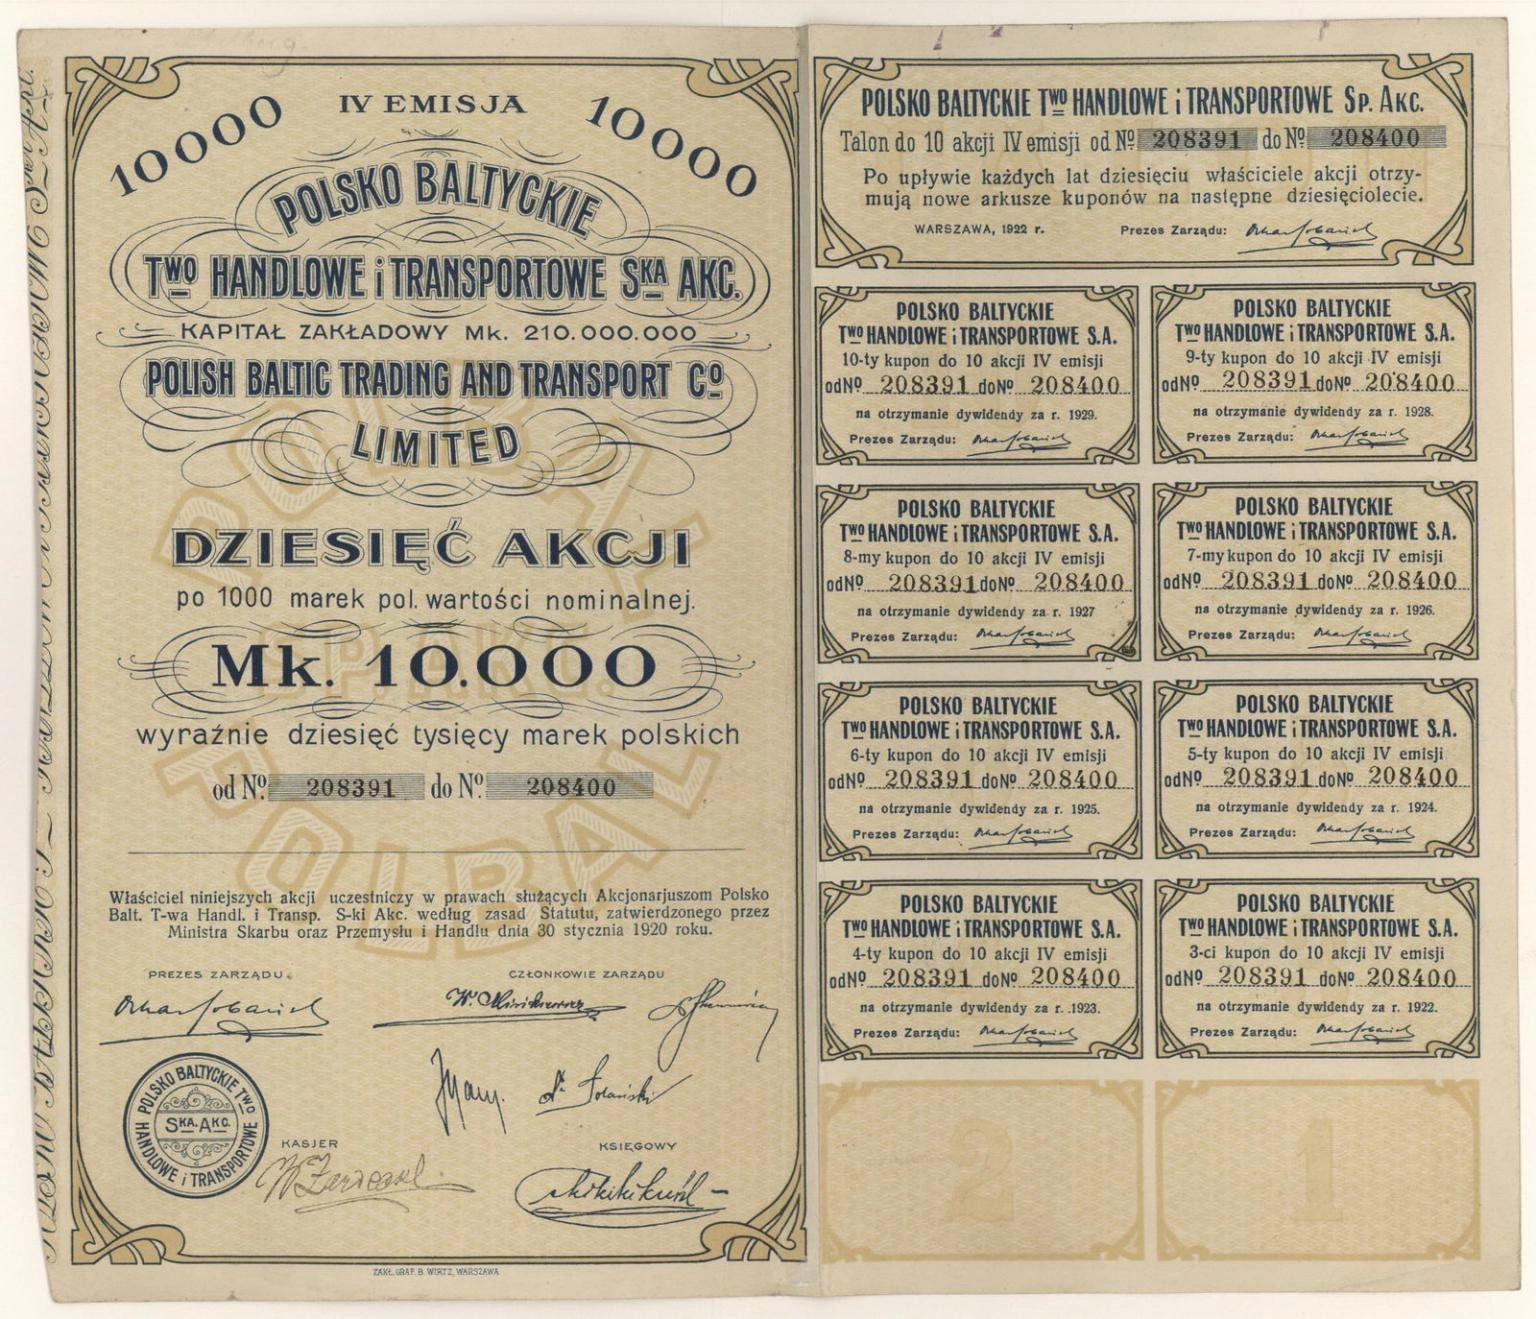 10000
IV EMISJA
10000
POLSKO BALTYCKIE
TWO HANDLOWE i TRANSPORTOWE SKA AKC.
KAPITAŁ ZAKŁADOWY MK. 210.000.000
POLISH BALTIC TRADING AND TRANSPORT CO
LIMITED
DZIESIĘĆ AKCJI
po 1000 marek pol. wartości nominalnej.
Mk. 10.000
wyraźnie dziesięć tysięcy marek polskich
od No. 208391 do No. 208400
POLBAL
SP. AKC.
Właściciel niniejszych akcji uczestniczy w prawach służących Akcjonarjuszom Polsko
Balt. T-wa Handl. i Transp. S-ki Akc. według zasad Statutu, zatwierdzonego przez
Ministra Skarbu oraz Przemysłu i Handlu dnia 30 stycznia 1920 roku.
PREZES ZARZĄDU.
CZŁONKOWIE ZARZĄDU
POLSKO BALTYCKIE TWO
HANDLOWE i TRANSPORTOWE
SKA. AKC.
KASJER
KSIĘGOWY
ZAKŁ. GRAF. B. WIRTZ, WARSZAWA
POLSKO BALTYCKIE TWO HANDLOWE i TRANSPORTOWE SP. AKC.
Talon do 10 akcji IV emisji od No 208391 do No. 208400
Po upływie każdych lat dziesięciu właściciele akcji otrzy-
mują nowe arkusze kuponów na następne dziesięciolecie.
WARSZAWA, 1922 r. Prezes Zarządu:
POLSKO BALTYCKIE
TWO HANDLOWE i TRANSPORTOWE S.A.
10-ty kupon do 10 akcji IV emisji
od No 208391 do No 208400
na otrzymanie dywidendy za r. 1929.
Prezes Zarządu:
POLSKO BALTYCKIE
TWO HANDLOWE i TRANSPORTOWE S.A.
9-ty kupon do 10 akcji IV emisji
od No 208391 do No 208400
na otrzymanie dywidendy za r. 1928.
Prezes Zarządu:
POLSKO BALTYCKIE
TWO HANDLOWE i TRANSPORTOWE S.A.
8-my kupon do 10 akcji IV emisji
od No 208391 do No 208400
na otrzymanie dywidendy za r. 1927
Prezes Zarządu:
POLSKO BALTYCKIE
TWO HANDLOWE i TRANSPORTOWE S.A.
7-my kupon do 10 akcji IV emisji
od No 208391 do No 208400
na otrzymanie dywidendy za r. 1926.
Prezes Zarządu:
POLSKO BALTYCKIE
TWO HANDLOWE i TRANSPORTOWE S.A.
6-ty kupon do 10 akcji IV emisji
od No 208391 do No 208400
na otrzymanie dywidendy za r. 1925.
Prezes Zarządu:
POLSKO BALTYCKIE
TWO HANDLOWE i TRANSPORTOWE S.A.
5-ty kupon do 10 akcji IV emisji
od No 208391 do No 208400
na otrzymanie dywidendy za r. 1924.
Prezes Zarządu:
POLSKO BALTYCKIE
TWO HANDLOWE i TRANSPORTOWE S.A.
4-ty kupon do 10 akcji IV emisji
od No 208391 do No 208400
na otrzymanie dywidendy za r. 1923.
Prezes Zarządu:
POLSKO BALTYCKIE
TWO HANDLOWE i TRANSPORTOWE S.A.
3-ci kupon do 10 akcji IV emisji
od No 208391 do No 208400
na otrzymanie dywidendy za r. 1922.
Prezes Zarządu:
2
1